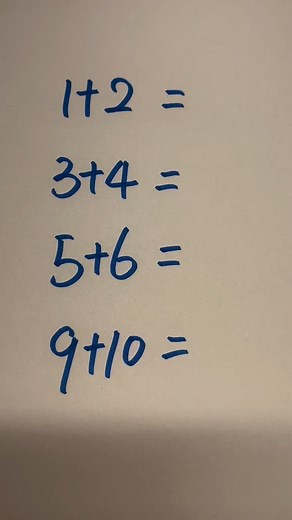 1+2 =
3+4 =
5+6 =
9+10 =